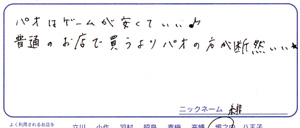 パオはゲームが安くていい♪
普通のお店で買うよりパオの方が断然いい★
ニックネーム 緋
よく利用されるお店を
立川 小作 羽村 昭島 青梅 高幡 堀之内 八王子